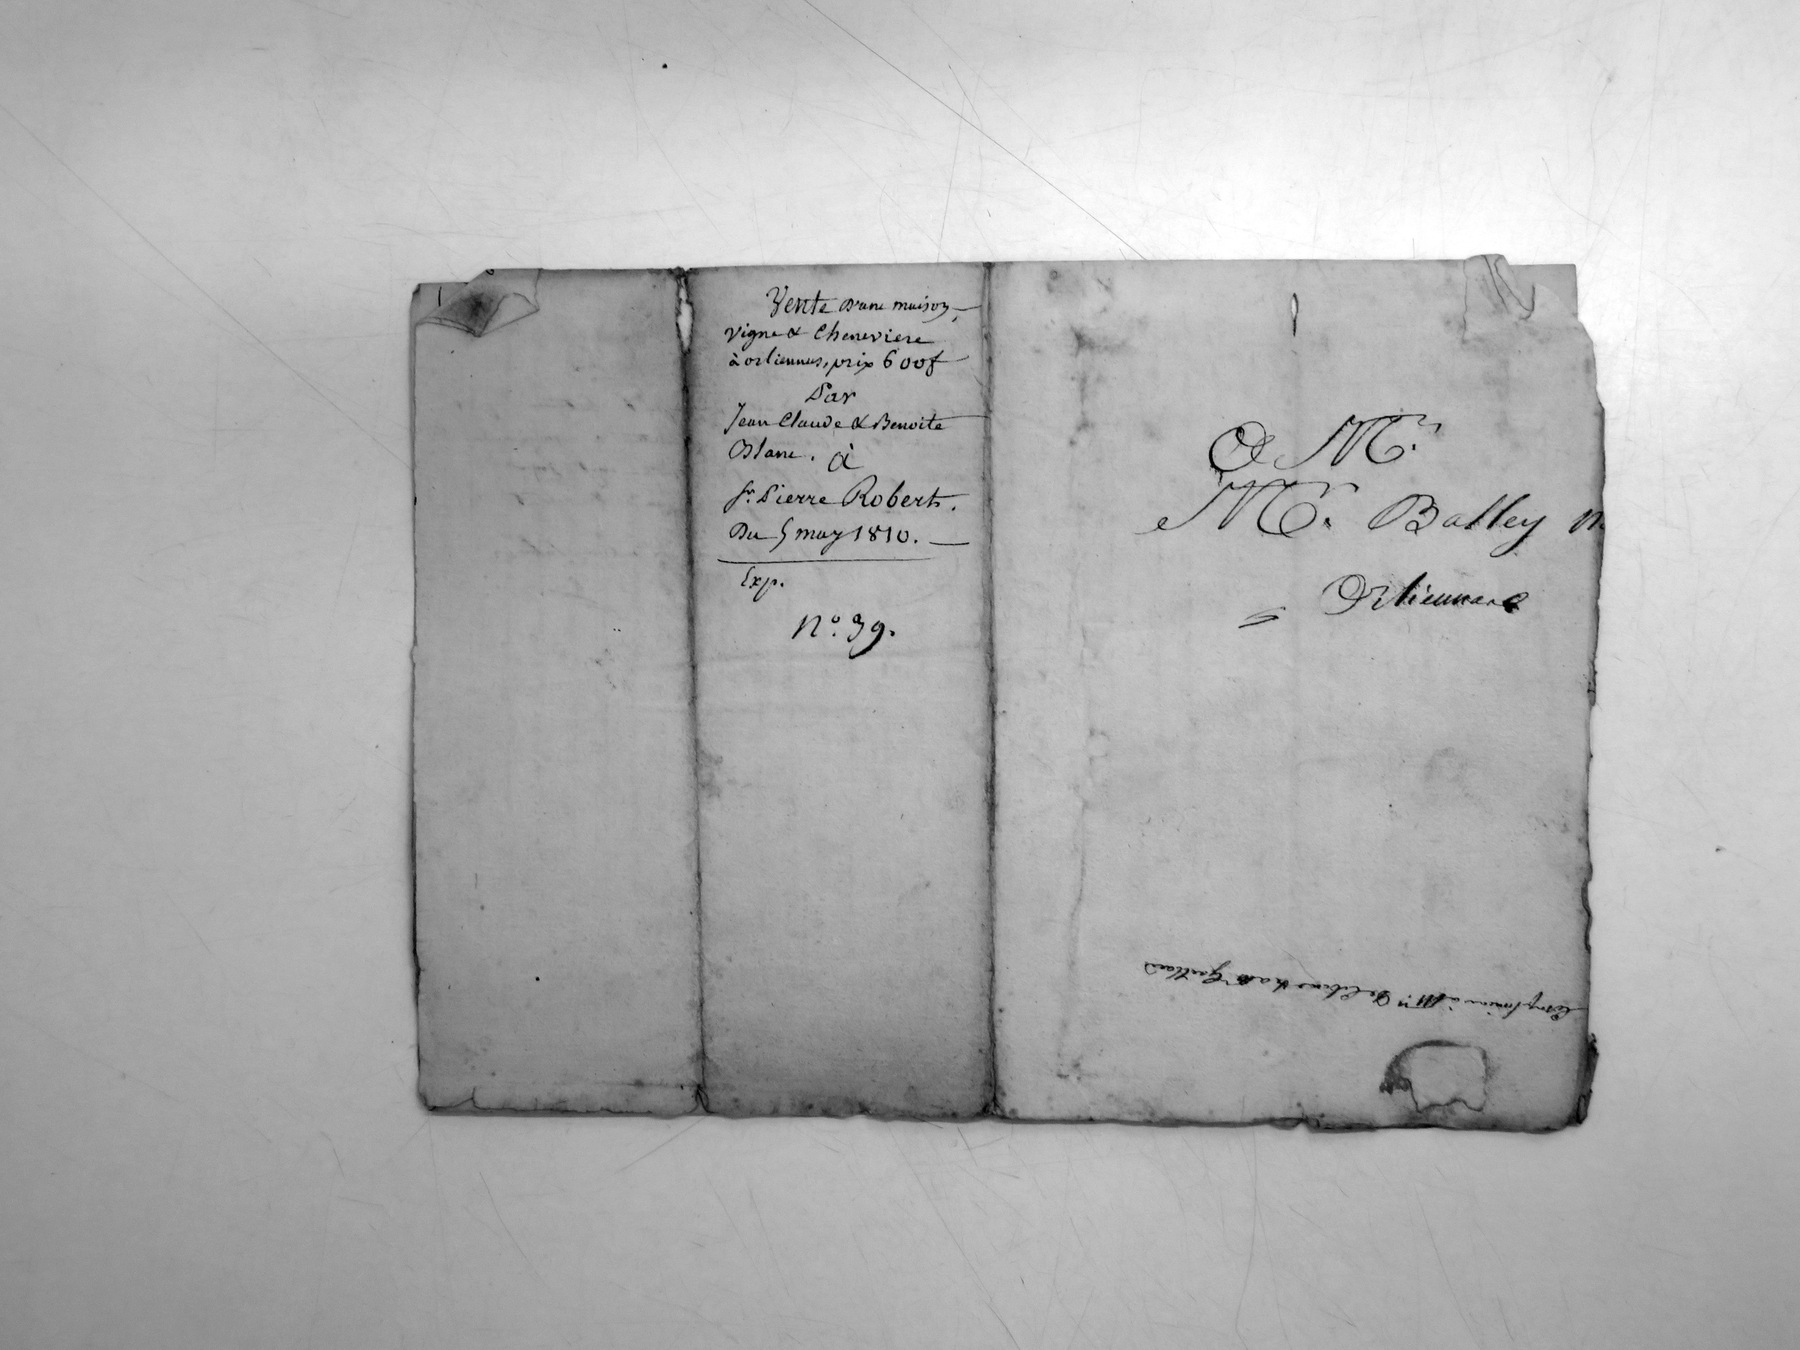 Vente d'une maison,
vigne & Cheneviere
à orliennes, prix 600f
Par
Jean Claude & Benoite
Blanc. à
Sr. Pierre Robert.
Du 5 may 1810.
Exp.
N°. 39.
A Mr.
Mr. Balley n
Orliennas
à Mr.